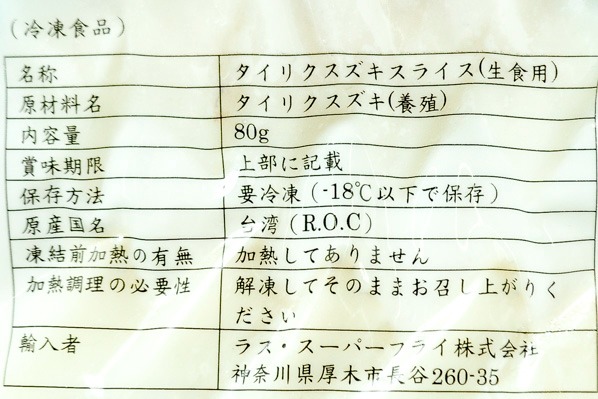 (冷凍食品)
名称 タイリクスズキスライス(生食用)
原材料名 タイリクスズキ(養殖)
内容量 80g
賞味期限 上部に記載
保存方法 要冷凍(-18℃以下で保存)
原産国名 台湾(R.O.C)
凍結前加熱の有無 加熱してありません
加熱調理の必要性 解凍してそのままお召し上がりく
ださい
輸入者 ラス・スーパーフライ株式会社
神奈川県厚木市長谷260-35